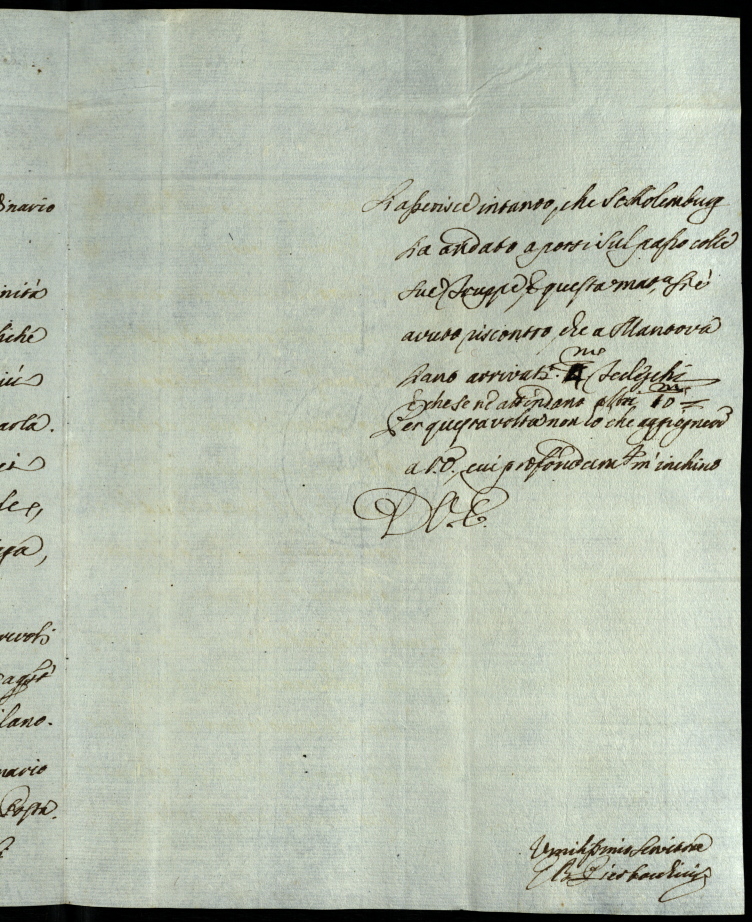 dinario
nità
liché
iù
arola.
ei
le,
ega,
revoli
lano.
nario
Posta.
Rapenisce intanto, che Scholemburg
ha andato a porsi sul passo colle
sue Truppe, e questa mat.a si è
avuto riscontro, che a Mantova
siano arrivati 4 me Tedeschi
e che se ne attendano altri 10 me
Per questa volta non ho che aggiugnere
a V.E., cui profondam.te m'inchino
D. V.E.
Umilissimo Servitore